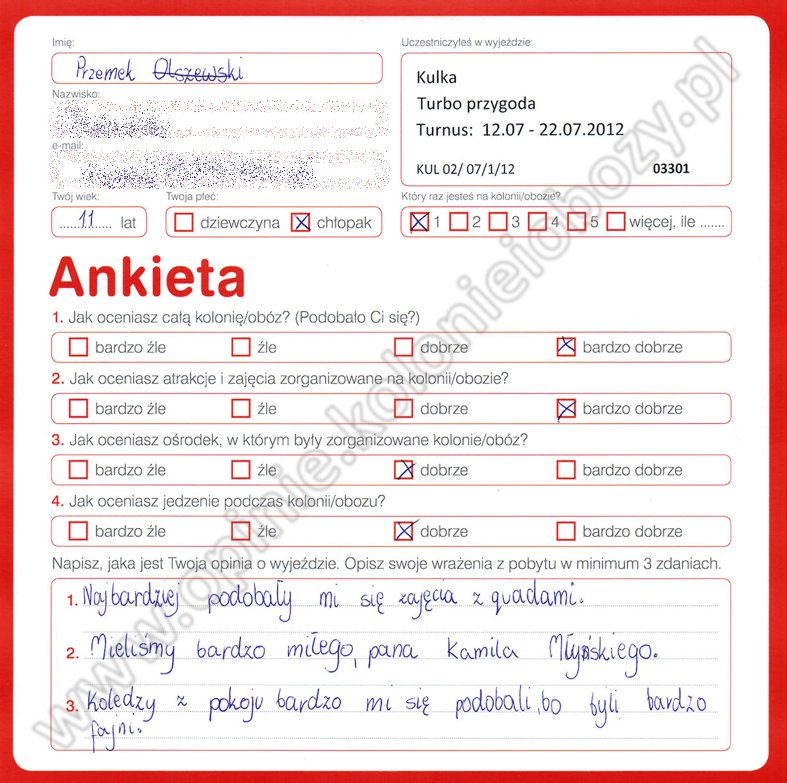 Imię:
Przemek Olszewski
Nazwisko:
e-mail:
Twój wiek:
11 lat
Twoja płeć:
dziewczyna chłopak
Uczestniczyłeś w wyjeździe:
Kulka
Turbo przygoda
Turnus: 12.07 - 22.07.2012
KUL 02/ 07/1/12 03301
Który raz jesteś na kolonii/obozie?
1 2 3 4 5 więcej, ile .......
Ankieta
1. Jak oceniasz całą kolonię/obóz? (Podobało Ci się?)
bardzo źle źle dobrze bardzo dobrze
2. Jak oceniasz atrakcje i zajęcia zorganizowane na kolonii/obozie?
bardzo źle źle dobrze bardzo dobrze
3. Jak oceniasz ośrodek, w którym były zorganizowane kolonie/obóz?
bardzo źle źle dobrze bardzo dobrze
4. Jak oceniasz jedzenie podczas kolonii/obozu?
bardzo źle źle dobrze bardzo dobrze
Napisz, jaka jest Twoja opinia o wyjeździe. Opisz swoje wrażenia z pobytu w minimum 3 zdaniach.
1. Najbardziej podobały mi się zajęcia z quadami.
2. Mieliśmy bardzo miłego, pana Kamila Młyńskiego.
3. Koledzy z pokoju bardzo mi się podobali, bo byli bardzo
fajni.
www.opinie.kolonieiobozy.pl